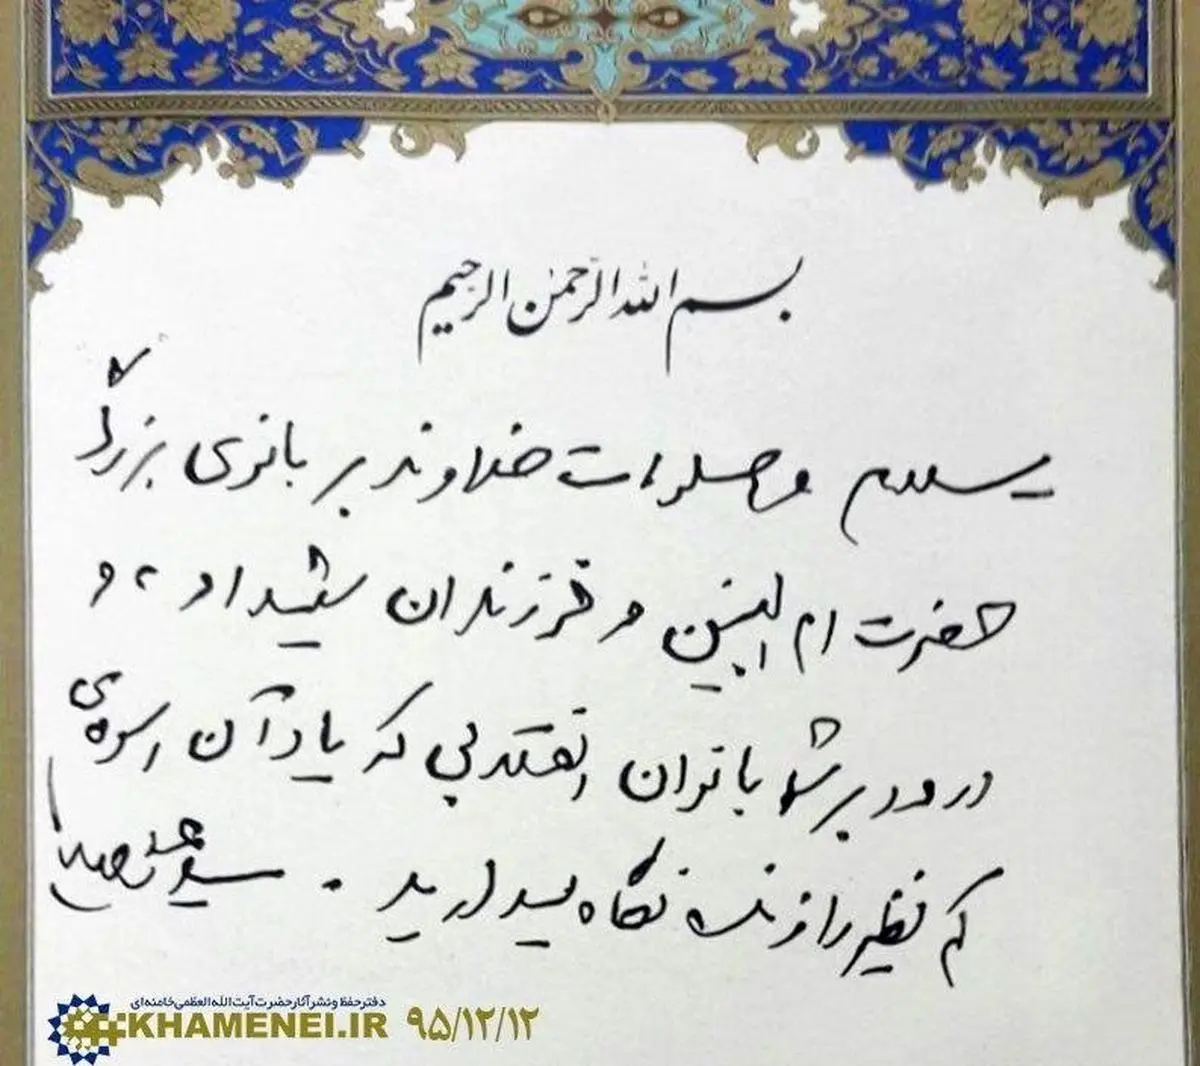 بسم الله الرّحمن الرّحیم
سلام و صلوات خداوند بر بانوی بزرگ
حضرت ام البنین و فرزندان شهید او، و
درود بر شما بانوان انقلابی که یاد آن اسوه‌ی
کم نظیر را زنده نگاه میدارید. سید
دفتر حفظ و نشر آثار حضرت آیت‌الله العظمی خامنه‌ای
KHAMENEI.IR ۹۵/۱۲/۱۲